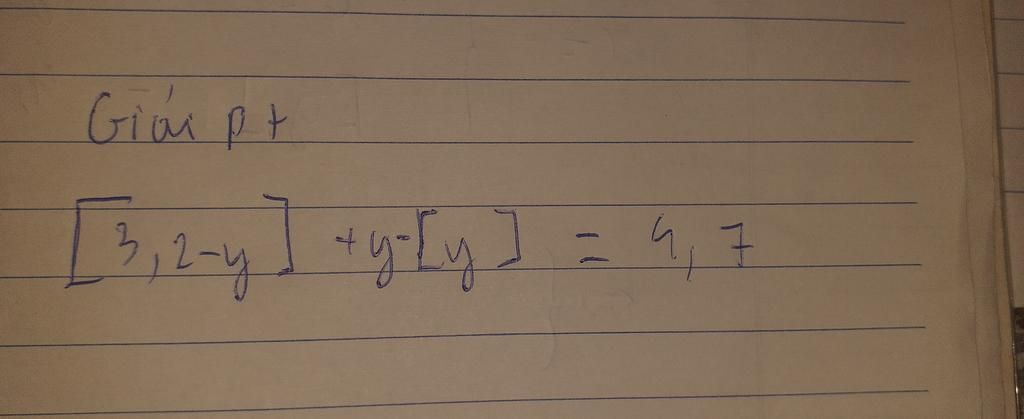 Giải pt
[3,2-y] + y - [y] = 4,7